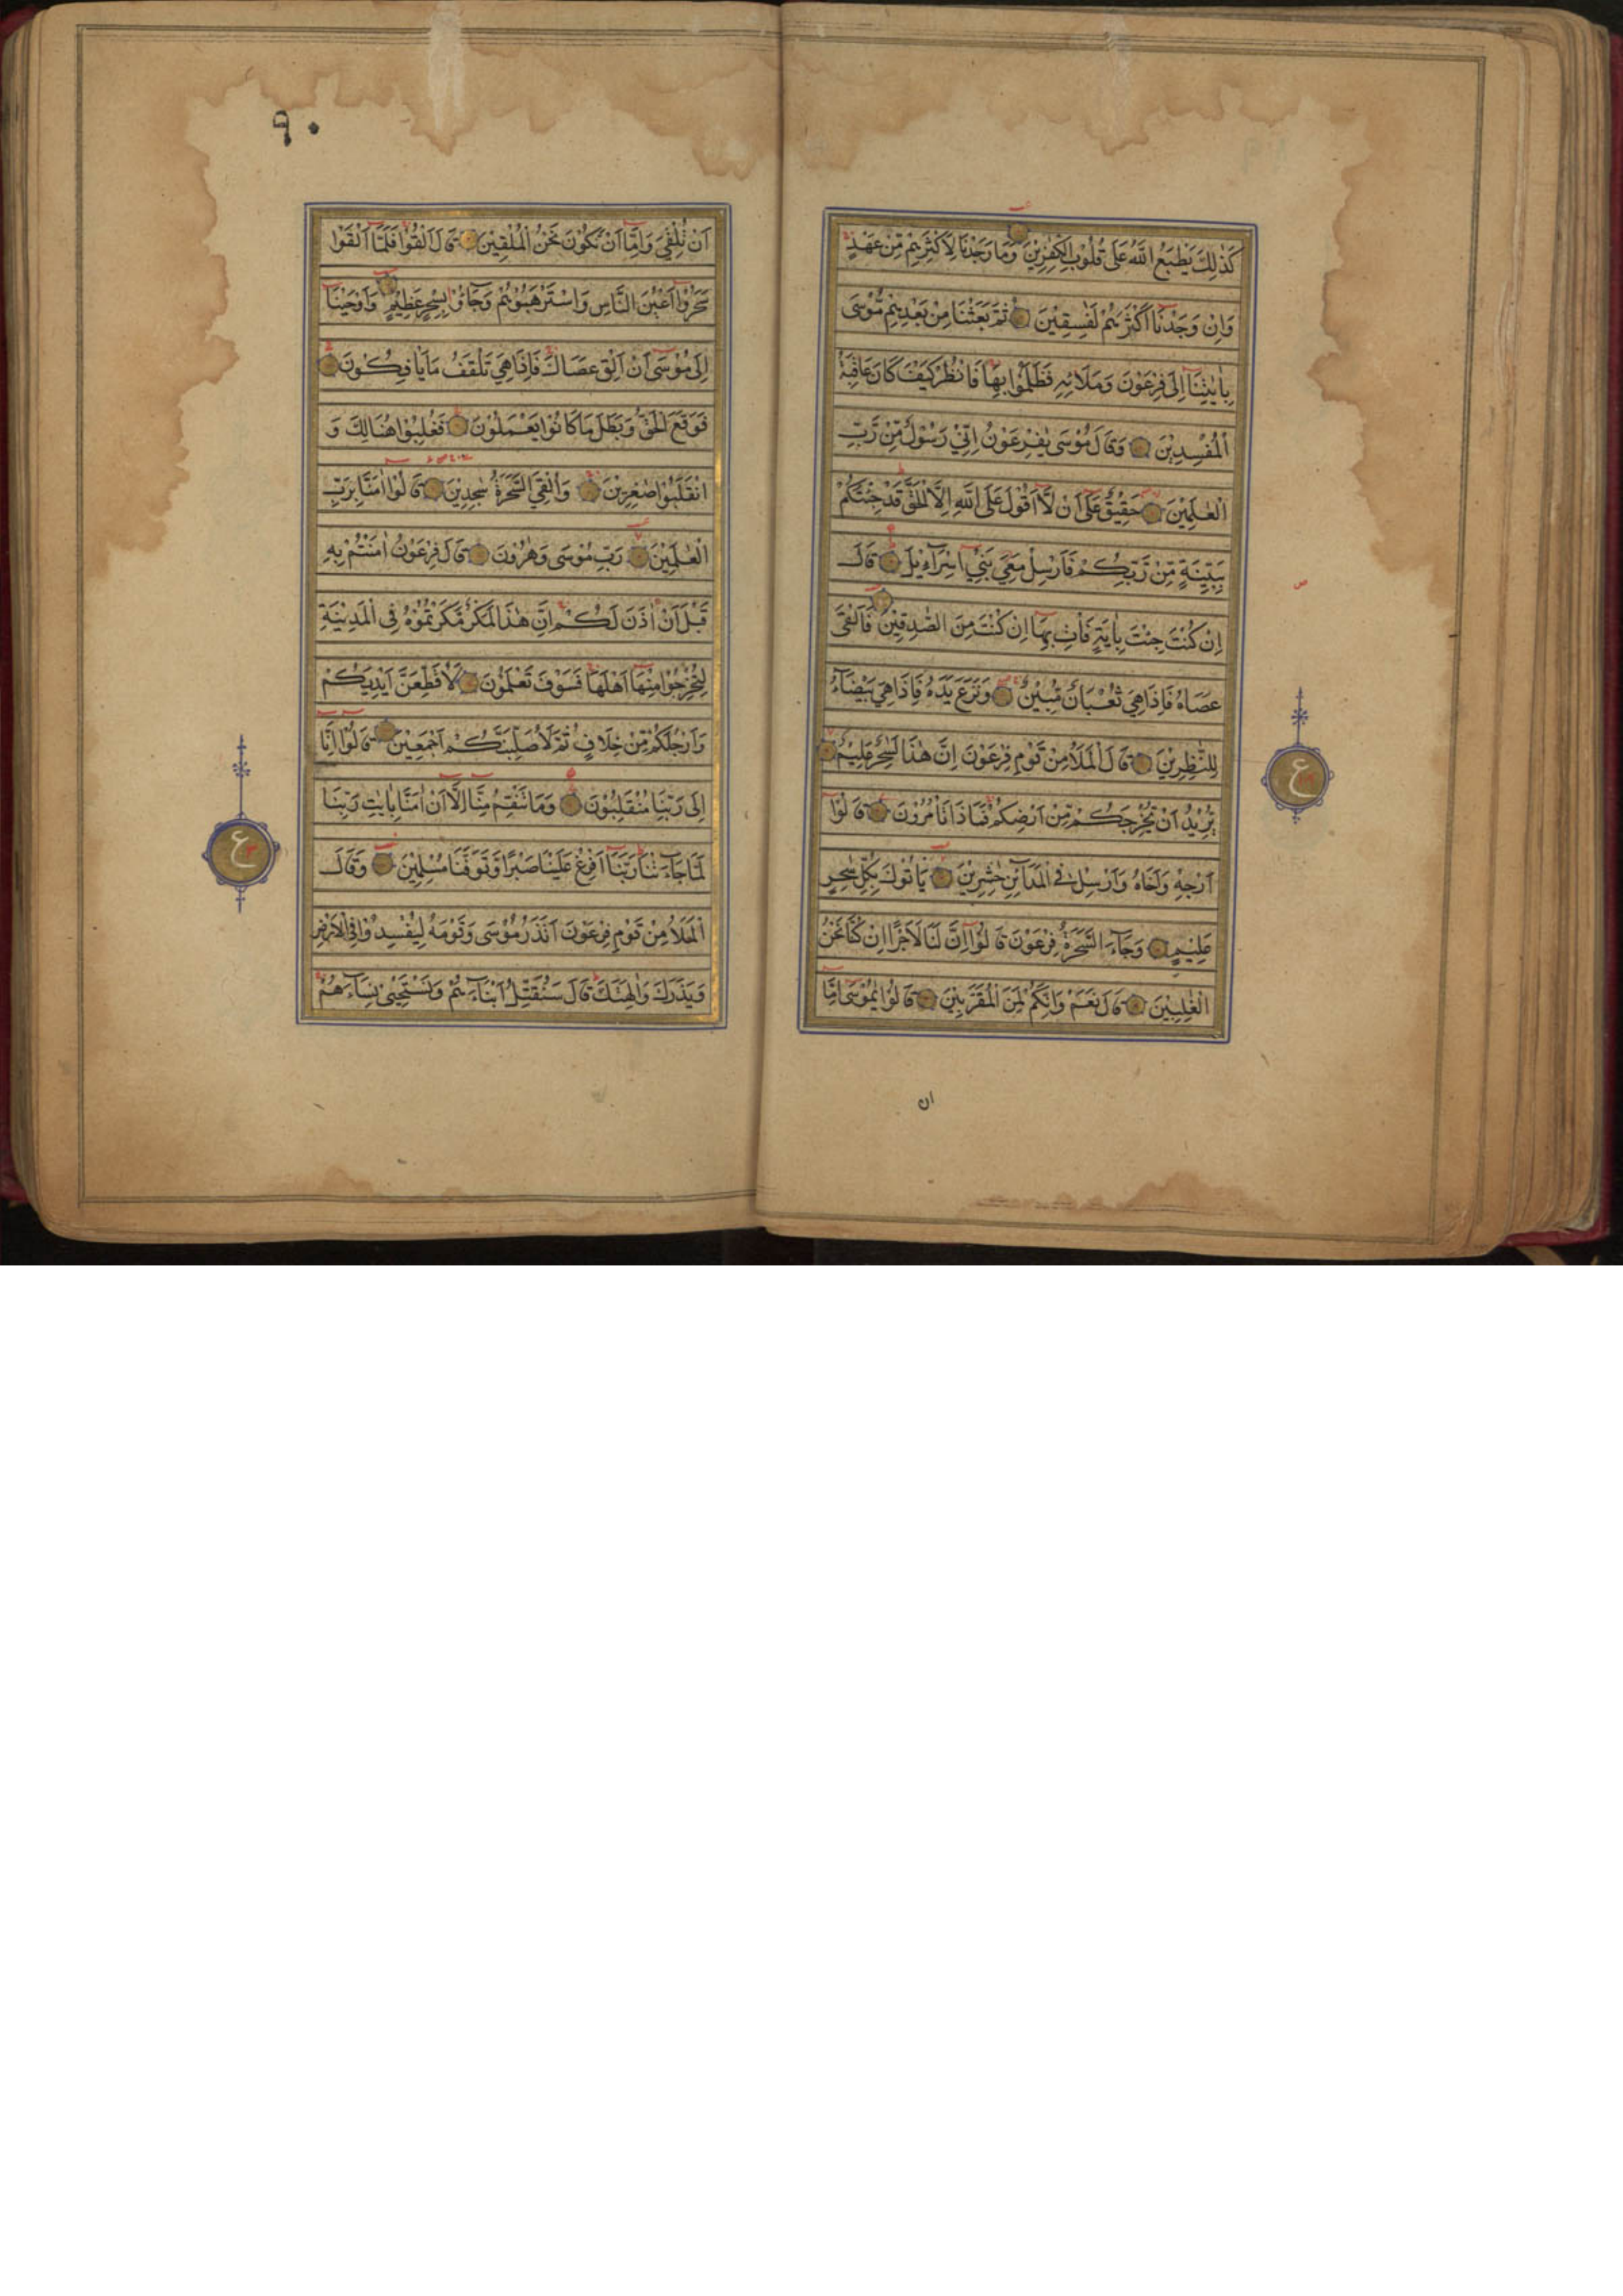 كَذٰلِكَ يَطْبَعُ اللّٰهُ عَلٰى قُلُوْبِ الْكٰفِرِيْنَ وَمَا وَجَدْنَا لِاَكْثَرِهِمْ مِّنْ عَهْدٍ
وَاِنْ وَجَدْنَا اَكْثَرَهُمْ لَفٰسِقِيْنَ ثُمَّ بَعَثْنَا مِنْ بَعْدِهِمْ مُّوْسٰى
بِاٰيٰتِنَا اِلٰى فِرْعَوْنَ وَمَلَا۟ئِهٖ فَظَلَمُوْا بِهَا فَانْظُرْ كَيْفَ كَانَ عَاقِبَةُ
الْمُفْسِدِيْنَ وَقَالَ مُوْسٰى يٰفِرْعَوْنُ اِنِّيْ رَسُوْلٌ مِّنْ رَّبِّ
الْعٰلَمِيْنَ حَقِيْقٌ عَلٰى اَنْ لَّا اَقُوْلَ عَلَى اللّٰهِ اِلَّا الْحَقَّ قَدْ جِئْتُكُمْ
بِبَيِّنَةٍ مِّنْ رَّبِّكُمْ فَاَرْسِلْ مَعِيَ بَنِيْ اِسْرَآءِيْلَ قَالَ
اِنْ كُنْتَ جِئْتَ بِاٰيَةٍ فَأْتِ بِهَا اِنْ كُنْتَ مِنَ الصّٰدِقِيْنَ فَاَلْقٰى
عَصَاهُ فَاِذَا هِيَ ثُعْبَانٌ مُّبِيْنٌ وَنَزَعَ يَدَهٗ فَاِذَا هِيَ بَيْضَآءُ
لِلنّٰظِرِيْنَ قَالَ الْمَلَاُ مِنْ قَوْمِ فِرْعَوْنَ اِنَّ هٰذَا لَسٰحِرٌ عَلِيْمٌ
يُّرِيْدُ اَنْ يُّخْرِجَكُمْ مِّنْ اَرْضِكُمْ فَمَاذَا تَأْمُرُوْنَ قَالُوْا
اَرْجِهْ وَاَخَاهُ وَاَرْسِلْ فِى الْمَدَآئِنِ حٰشِرِيْنَ يَأْتُوْكَ بِكُلِّ سٰحِرٍ
عَلِيْمٍ وَجَآءَ السَّحَرَةُ فِرْعَوْنَ قَالُوْا اِنَّ لَنَا لَاَجْرًا اِنْ كُنَّا نَحْنُ
الْغٰلِبِيْنَ قَالَ نَعَمْ وَاِنَّكُمْ لَمِنَ الْمُقَرَّبِيْنَ قَالُوْا يٰمُوْسٰى اِمَّا
ان
ص
ع
٩٠
اَنْ تُلْقِيَ وَاِمَّا اَنْ نَّكُوْنَ نَحْنُ الْمُلْقِيْنَ قَالَ اَلْقُوْا فَلَمَّا اَلْقَوْا
سَحَرُوْا اَعْيُنَ النَّاسِ وَاسْتَرْهَبُوْهُمْ وَجَآؤُ بِسِحْرٍ عَظِيْمٍ وَاَوْحَيْنَا
اِلٰى مُوْسٰى اَنْ اَلْقِ عَصَاكَ فَاِذَا هِيَ تَلْقَفُ مَا يَأْفِكُوْنَ
فَوَقَعَ الْحَقُّ وَبَطَلَ مَا كَانُوْا يَعْمَلُوْنَ فَغُلِبُوْا هُنَالِكَ وَ
انْقَلَبُوْا صٰغِرِيْنَ وَاُلْقِيَ السَّحَرَةُ سٰجِدِيْنَ قَالُوْا اٰمَنَّا بِرَبِّ
الْعٰلَمِيْنَ رَبِّ مُوْسٰى وَهٰرُوْنَ قَالَ فِرْعَوْنُ اٰمَنْتُمْ بِهٖ
قَبْلَ اَنْ اٰذَنَ لَكُمْ اِنَّ هٰذَا لَمَكْرٌ مَّكَرْتُمُوْهُ فِى الْمَدِيْنَةِ
لِتُخْرِجُوْا مِنْهَا اَهْلَهَا فَسَوْفَ تَعْلَمُوْنَ لَاُقَطِّعَنَّ اَيْدِيَكُمْ
وَاَرْجُلَكُمْ مِّنْ خِلَافٍ ثُمَّ لَاُصَلِّبَنَّكُمْ اَجْمَعِيْنَ قَالُوْا اِنَّا
اِلٰى رَبِّنَا مُنْقَلِبُوْنَ وَمَا تَنْقِمُ مِنَّا اِلَّا اَنْ اٰمَنَّا بِاٰيٰتِ رَبِّنَا
لَمَّا جَآءَتْنَا رَبَّنَا اَفْرِغْ عَلَيْنَا صَبْرًا وَّتَوَفَّنَا مُسْلِمِيْنَ وَقَالَ
الْمَلَاُ مِنْ قَوْمِ فِرْعَوْنَ اَتَذَرُ مُوْسٰى وَقَوْمَهٗ لِيُفْسِدُوْا فِى الْاَرْضِ
وَيَذَرَكَ وَاٰلِهَتَكَ قَالَ سَنُقَتِّلُ اَبْنَآءَهُمْ وَنَسْتَحْيٖ نِسَآءَهُمْ
ع